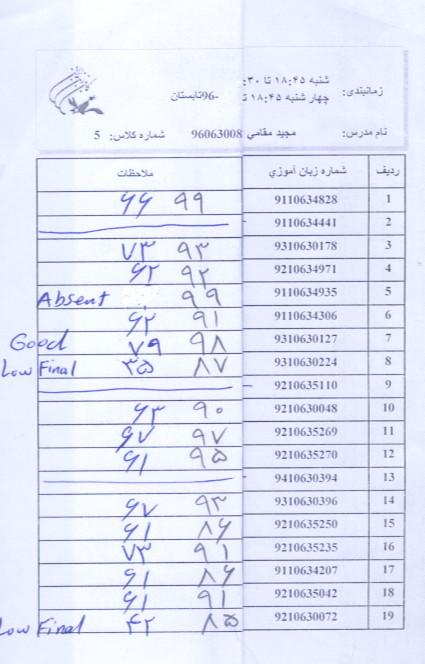 زمانبندی: شنبه ۱۸:۴۵ تا ۳۰:
چهار شنبه ۱۸:۴۵ ت -96تابستان
نام مدرس: مجید مقامی 96063008 شماره کلاس: 5
ردیف شماره زبان آموزي ملاحظات
1 9110634828 ۹۹ ۶۶
2 9110634441
3 9310630178 ۹۳ ۷۳
4 9210634971 ۹۲ ۶۲
5 9110634935 ۹۹ Absent
6 9110634306 ۹۱ ۶۲
7 9310630127 ۹۸ ۷۹ Good
8 9310630224 ۸۷ ۳۵ Low Final
9 9210635110
10 9210630048 ۹۰ ۶۳
11 9210635269 ۹۷ ۶۷
12 9210635270 ۹۵ ۶۱
13 9410630394
14 9310630396 ۹۳ ۶۷
15 9210635250 ۸۶ ۶۱
16 9210635235 ۹۱ ۷۳
17 9110634207 ۸۶ ۶۱
18 9210635042 ۹۱ ۶۱
19 9210630072 ۸۵ ۴۲ Low Final